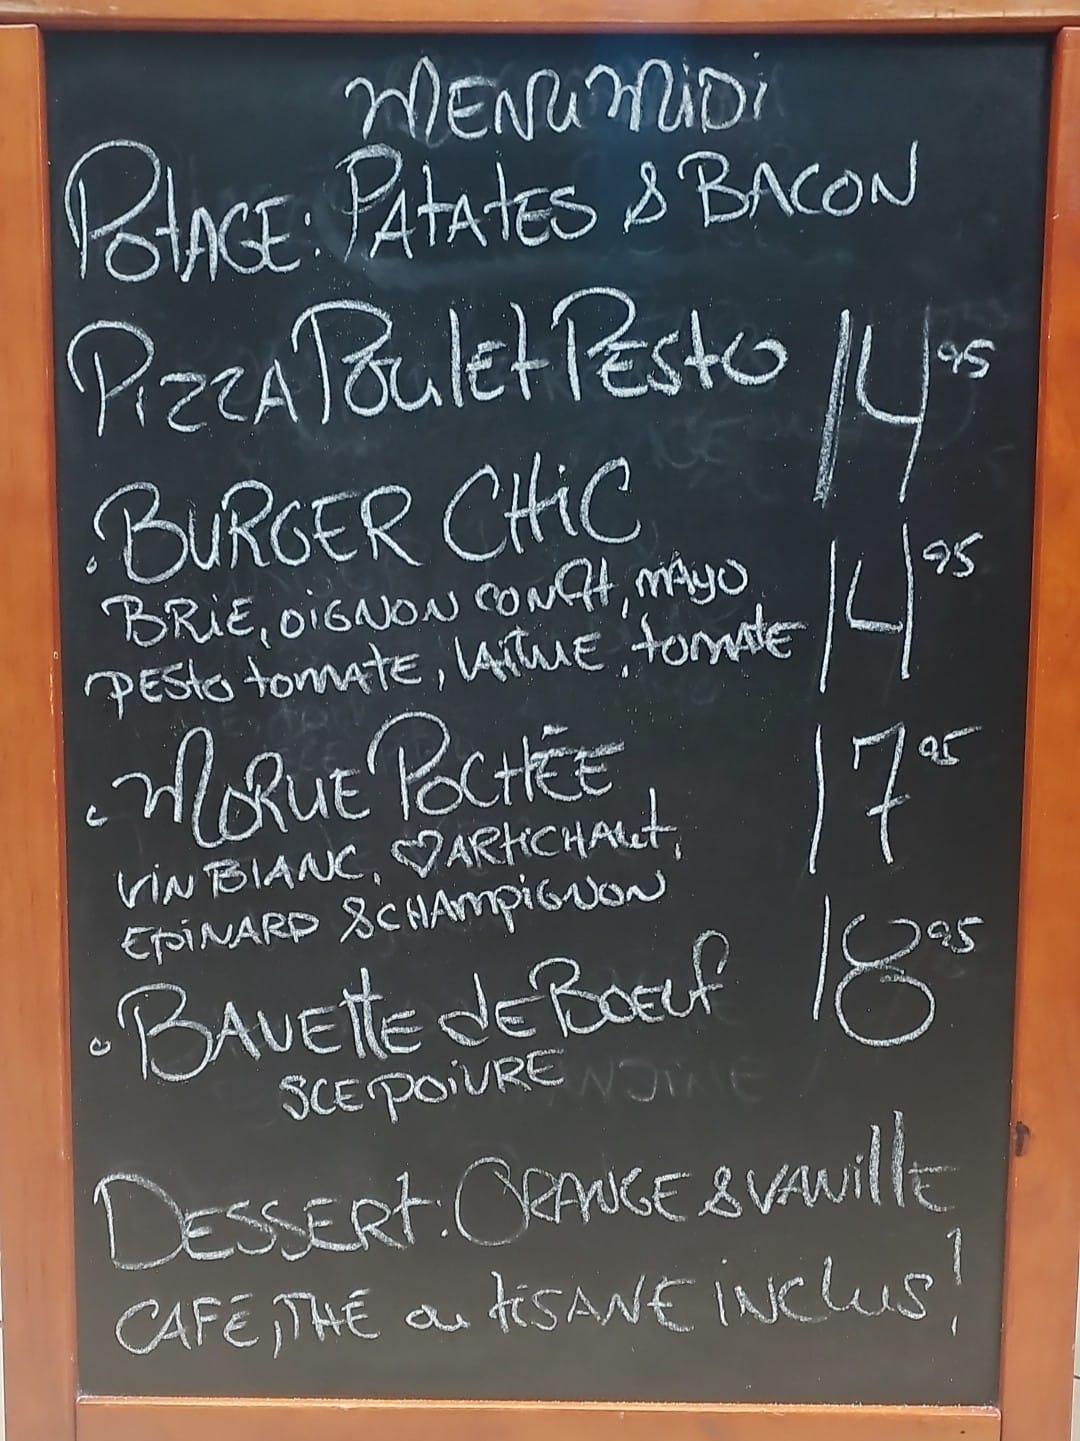 MENU MiDi
POtAGE: PAtAtES & BACON
PIZZA POulEt PESto 14 95
BURGER CHiC
BRiE, OIGNON CONfit, MAYO 14 95
PESto tomAtE, LAitUE, tomAtE
MORUE POCHÉE 17 95
ViN BlANC, ♡ ARtiCHAut,
EPiNARD & CHAmpiGNON
BAVEttE dE BOEuf 18 95
SCE POiVRE
DESSERt: ORANGE & VANillE
CAFÉ, THÉ ou tiSANE iNClus!